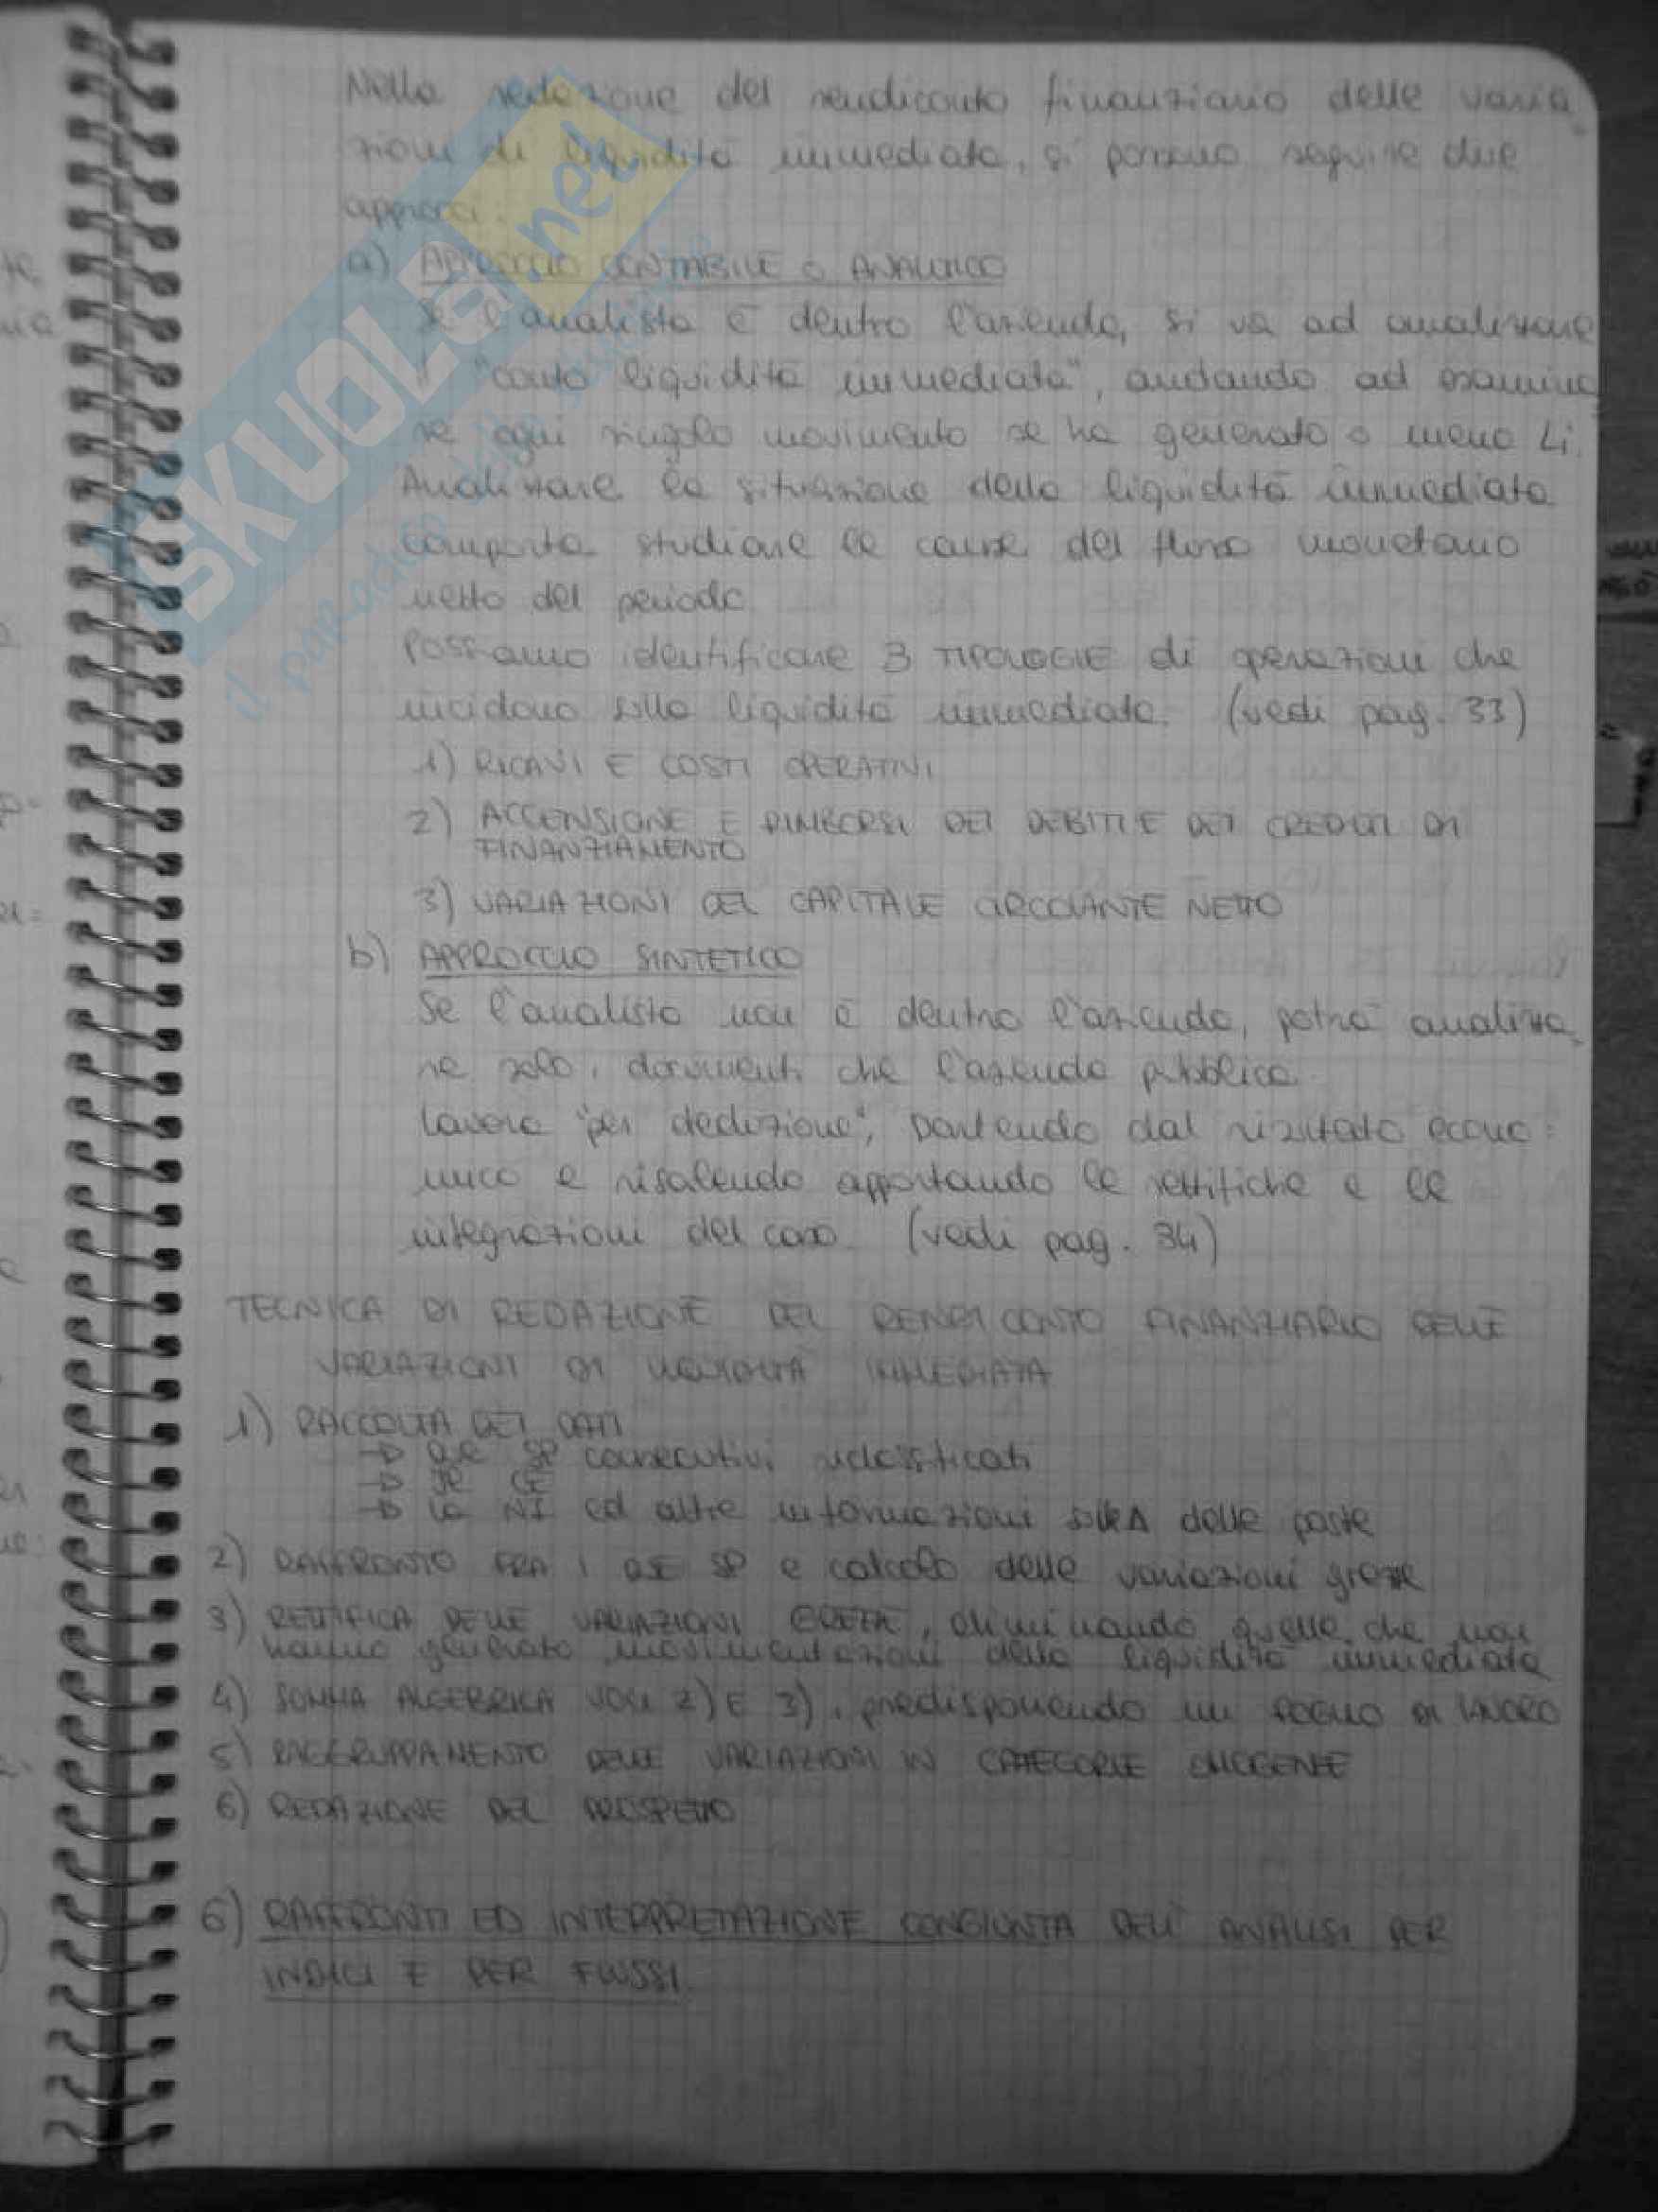 Nella redazione del rendiconto finanziario delle varia
zioni di liquidità immediata, si possono seguire due
approcci:
a) APPROCCIO CONTABILE O ANALITICO
Se l'analista è dentro l'azienda, si va ad analizzare
il "conto liquidità immediata", andando ad esamina
re ogni singolo movimento se ha generato o meno Li.
Analizzare la situazione della liquidità immediata
comporta studiare le cause del flusso monetario
netto del periodo
Possiamo identificare 3 TIPOLOGIE di operazioni che
incidono sulla liquidità immediata. (vedi pag. 33)
1) RICAVI E COSTI OPERATIVI
2) ACCENSIONE E RIMBORSI DEI DEBITI E DEI CREDITI DI
FINANZIAMENTO
3) VARIAZIONI DEL CAPITALE CIRCOLANTE NETTO
b) APPROCCIO SINTETICO
Se l'analista non è dentro l'azienda, potrà analizza
re solo i documenti che l'azienda pubblica.
Lavora "per deduzione", partendo dal risultato econo=
mico e risalendo apportando le rettifiche e le
integrazioni del caso (vedi pag. 34)
TECNICA DI REDAZIONE DEL RENDICONTO FINANZIARIO DELLE
VARIAZIONI DI LIQUIDITÀ IMMEDIATA
1) RACCOLTA DEI DATI
→ SP consecutivi riclassificati
→ CE
→ la NI ed altre informazioni sulle Δ delle poste
2) RAFFRONTO FRA I SP e calcolo delle variazioni grezze
3) RETTIFICA DELLE VARIAZIONI GREZZE, eliminando quelle che non
hanno generato movimentazioni della liquidità immediata
4) SOMMA ALGEBRICA VOCI 2) E 3), predisponendo un FOGLIO DI LAVORO
5) RAGGRUPPAMENTO DELLE VARIAZIONI IN CATEGORIE OMOGENEE
6) REDAZIONE DEL PROSPETTO
6) RAFFRONTI ED INTERPRETAZIONE CONGIUNTA DELL'ANALISI PER
INDICI E PER FLUSSI.
SKUOLA.net
il paradiso dello studente